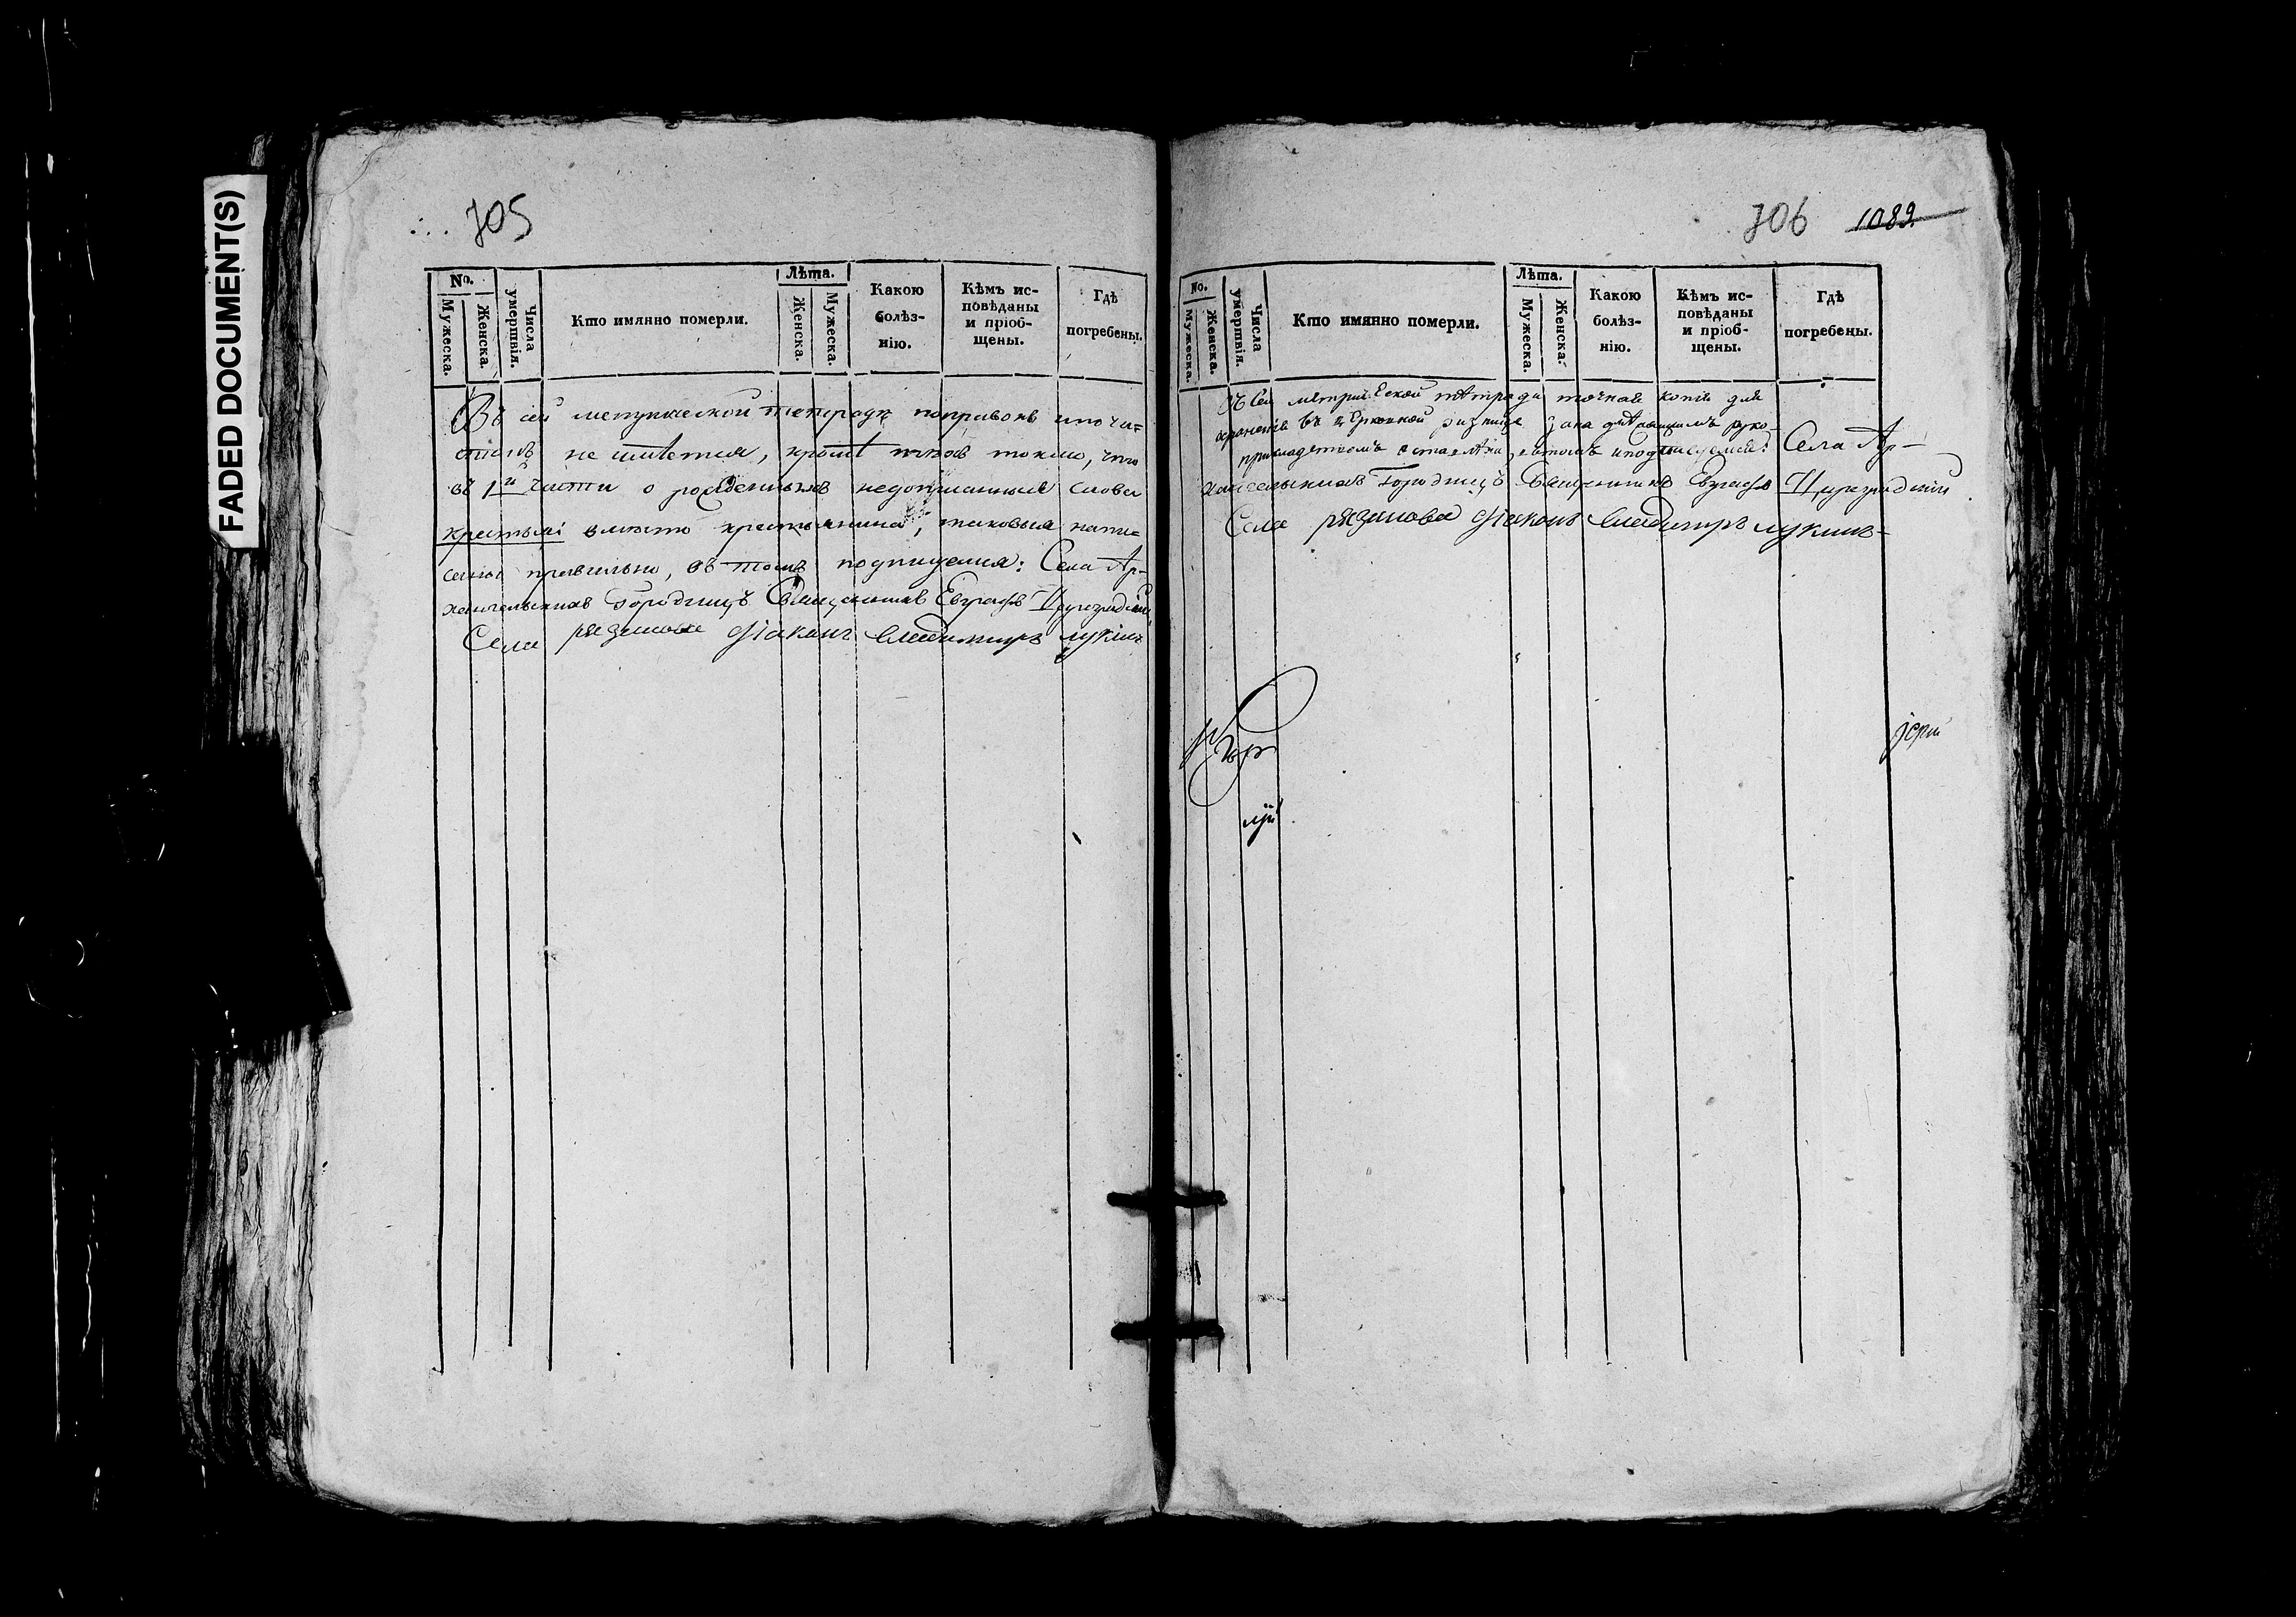 FADED DOCUMENT(S)
705
No.
Мужеска.
Женска.
Числа умертвія.
Кто имянно померли.
Лѣта.
Женска.
Мужеска.
Какою болѣз-
нію.
Кѣмъ ис-
повѣданы
и пріоб-
щены.
Гдѣ
погребены.
Въ сей метрической тетради поправокъ и почи-
стокъ не имѣется, кромѣ токмо, что
въ 1й части о рожденныхъ недописанныя слова
крестьяни вмѣсто крестьянина, таковыя напи-
саны правильно, въ томъ подписуемся: Села Ар-
хангельскихъ Городищъ Священникъ Евграфъ Цареградскій
Села рязанова діаконъ Владимиръ лукинъ
706 1089
No.
Мужеска.
Женска.
Числа умертвія.
Кто имянно померли.
Лѣта.
Мужеска.
Женска.
Какою
болѣз-
нію.
Кѣмъ ис-
повѣданы
и пріоб-
щены.
Гдѣ
погребены.
Съ сей метрической тетради точная копія для
храненія въ церковной ризницѣ за надлежащимъ руко-
прикладствомъ оставлена въ томъ и подписуемся: Села Ар-
хангельскихъ Городищъ Священникъ Евграфъ Цареградскій
Села рязанова діаконъ Владимиръ лукинъ
іерей